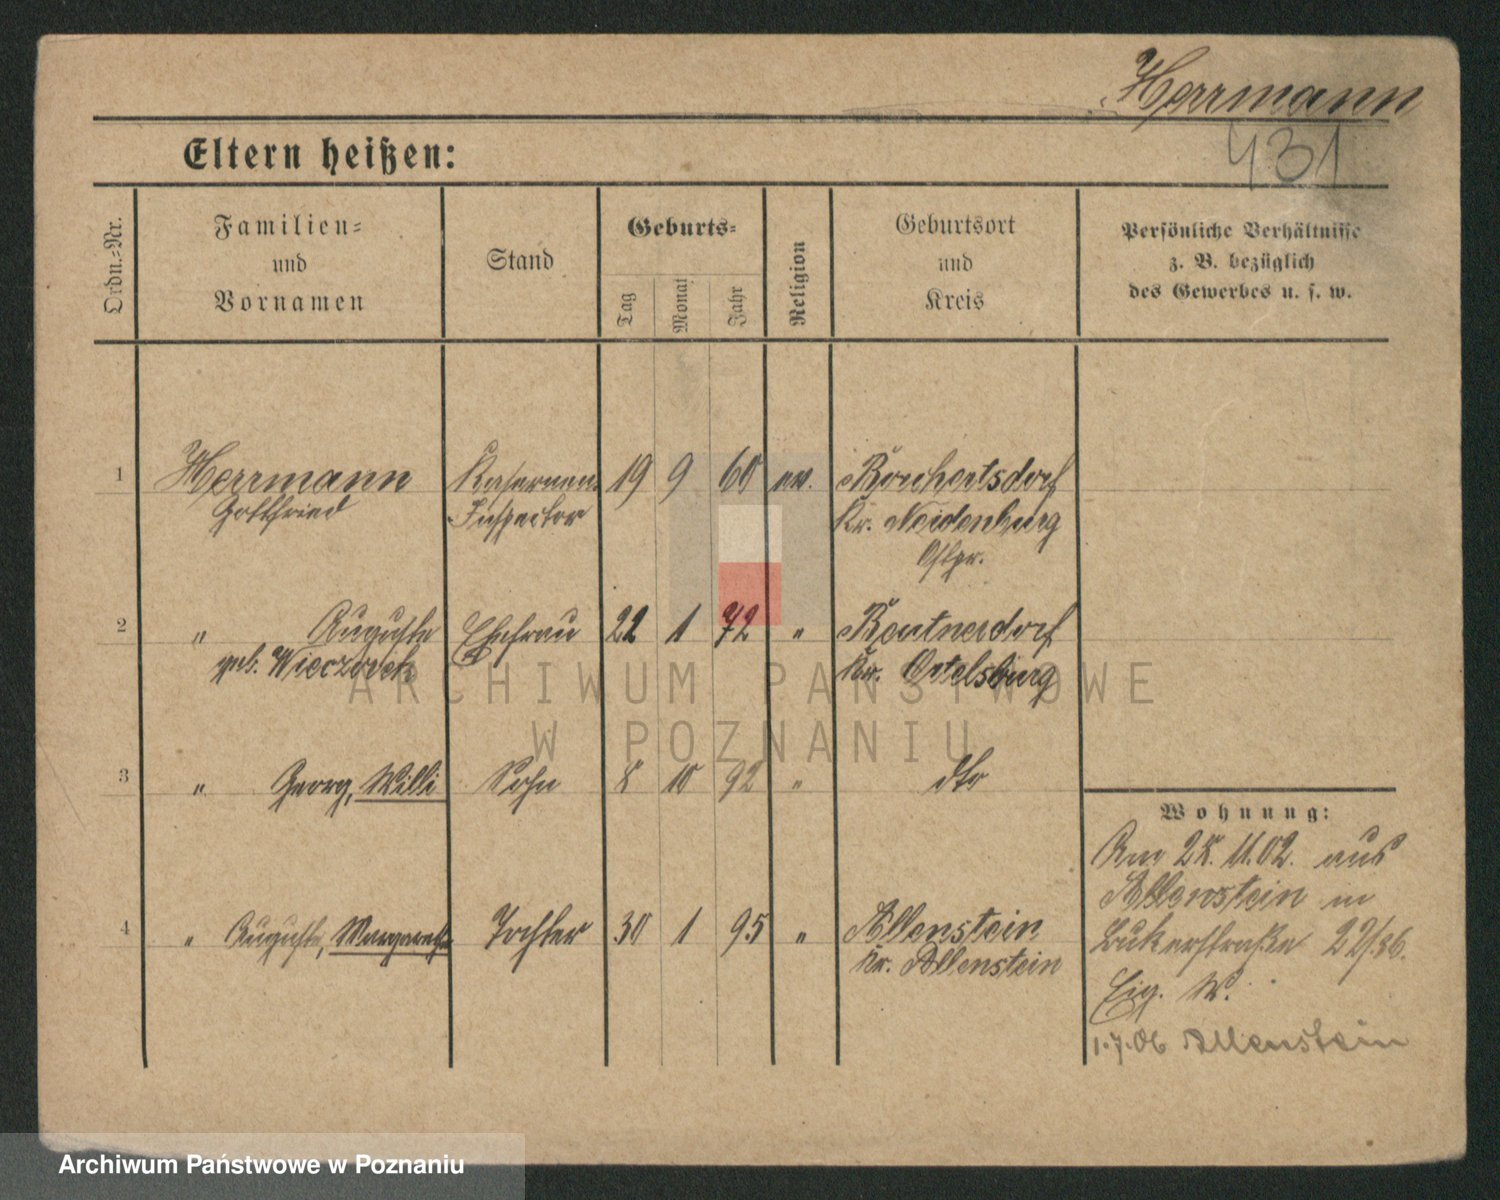 Herrmann
431
Eltern heißen:
Ordn.-Nr.
Familien-
und
Vornamen
Stand
Geburts-
Tag
Monat
Jahr
Religion
Geburtsort
und
Kreis
Persönliche Verhältnisse
z. B. bezüglich
des Gewerbes u. s. w.
1 Herrmann Kasernen 19 9 60 ev. Borchertsdorf
Gottfried Inspector Kr. Neidenburg
Ostpr.
2 " Auguste Ehefrau 22 1 72 " Beutnerdorf
geb. Wieczorek Kr. Ortelsburg
ARCHIWUM PAŃSTWOWE
W POZNANIU
3 " Georg, Willi Sohn 8 10 92 " dto
4 " Auguste, Margarethe Tochter 30 1 95 " Allenstein
Kr. Allenstein
Wohnung:
Am 28.11.02. aus
Allenstein in
22/86.
Eig. W.
1.7.06 Allenstein
Archiwum Państwowe w Poznaniu